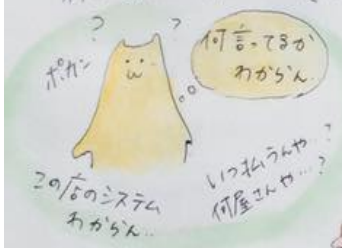 ?
?
ポカン
何言ってるか
わからん
この店のシステム
わからん..
いつ払うんや…?
何屋さんや…?